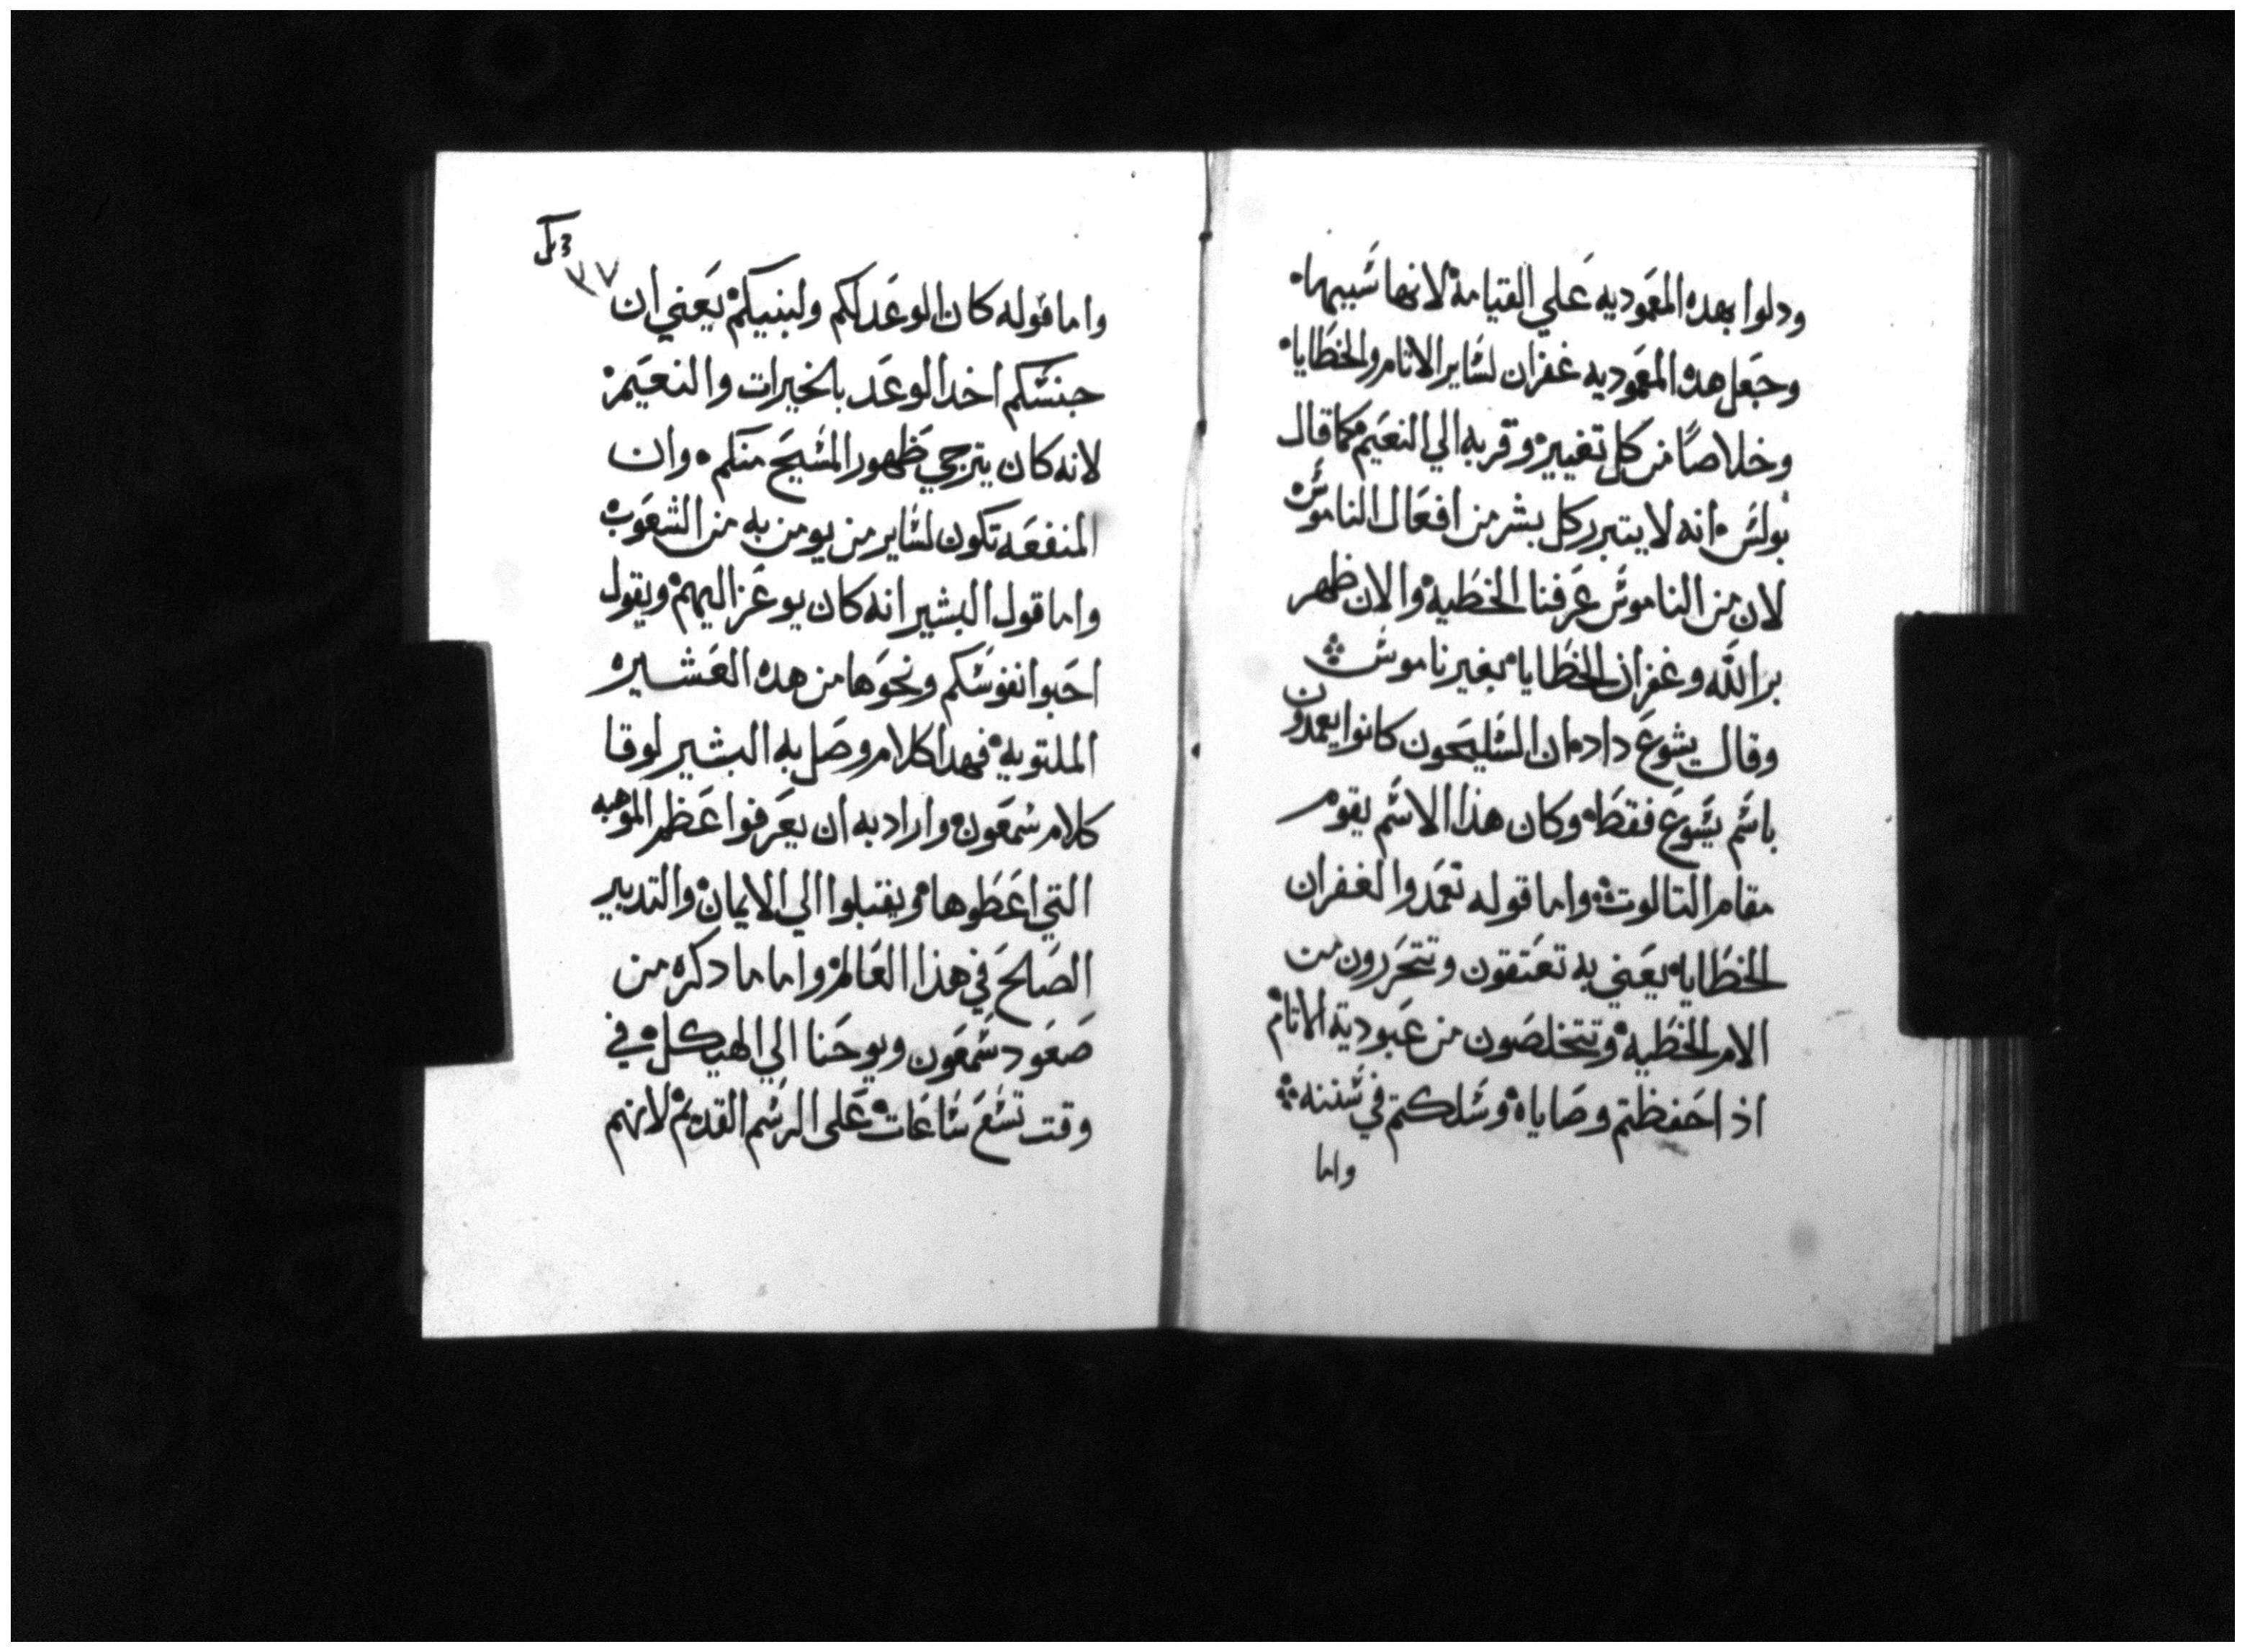 ودلوا بهده المعموديه علي القيامة لانها شبيهها
وجعل هده المعموديه غفران لساير الاتام والخطايا
وخلاصًا من كل تغيير وقربه الي النعيم كما قال
بولس انه لا يتبرر كل بشر من افعال الناموس
لان من الناموس عرفنا الخطية والان ظهر
بر الله وغفران الخطايا بغير ناموس
وقال يشوع داد ان السليحون كانوا يعمدون
باسم يشوع فقط وكان هذا الاسم يقوم
مقام التالوت واما قوله تعمدوا لغفران
الخطايا يعني به تعتقون وتتحررون من
الام الخطية وتتخلصون من عبودية الاتام
اذ احفظتم وصاياه وسلكتم في سننه
واما
٣٧
واما قوله كان الوعد لكم ولبنيكم يعني ان
جنسكم اخد الوعد بالخيرات والنعيم
لانه كان يترجي ظهور المسيح منكم وان
المنفعه تكون لساير من يومن به من الشعوب
واما قول البشير انه كان يوعز اليهم ويقول
احبوا نفوسكم ونحوها من هده العشيره
الملتوية فهدا كلام وصل به البشير لوقا
كلام شمعون واراد به ان يعرفوا عظم الموهبه
التي اعطوها ويقبلوا الي الايمان والتدبير
الصالح في هذا العالم واما ما دكره من
صعود شمعون ويوحنا الي الهيكل في
وقت تسع ساعات على الرسم القديم لانهم